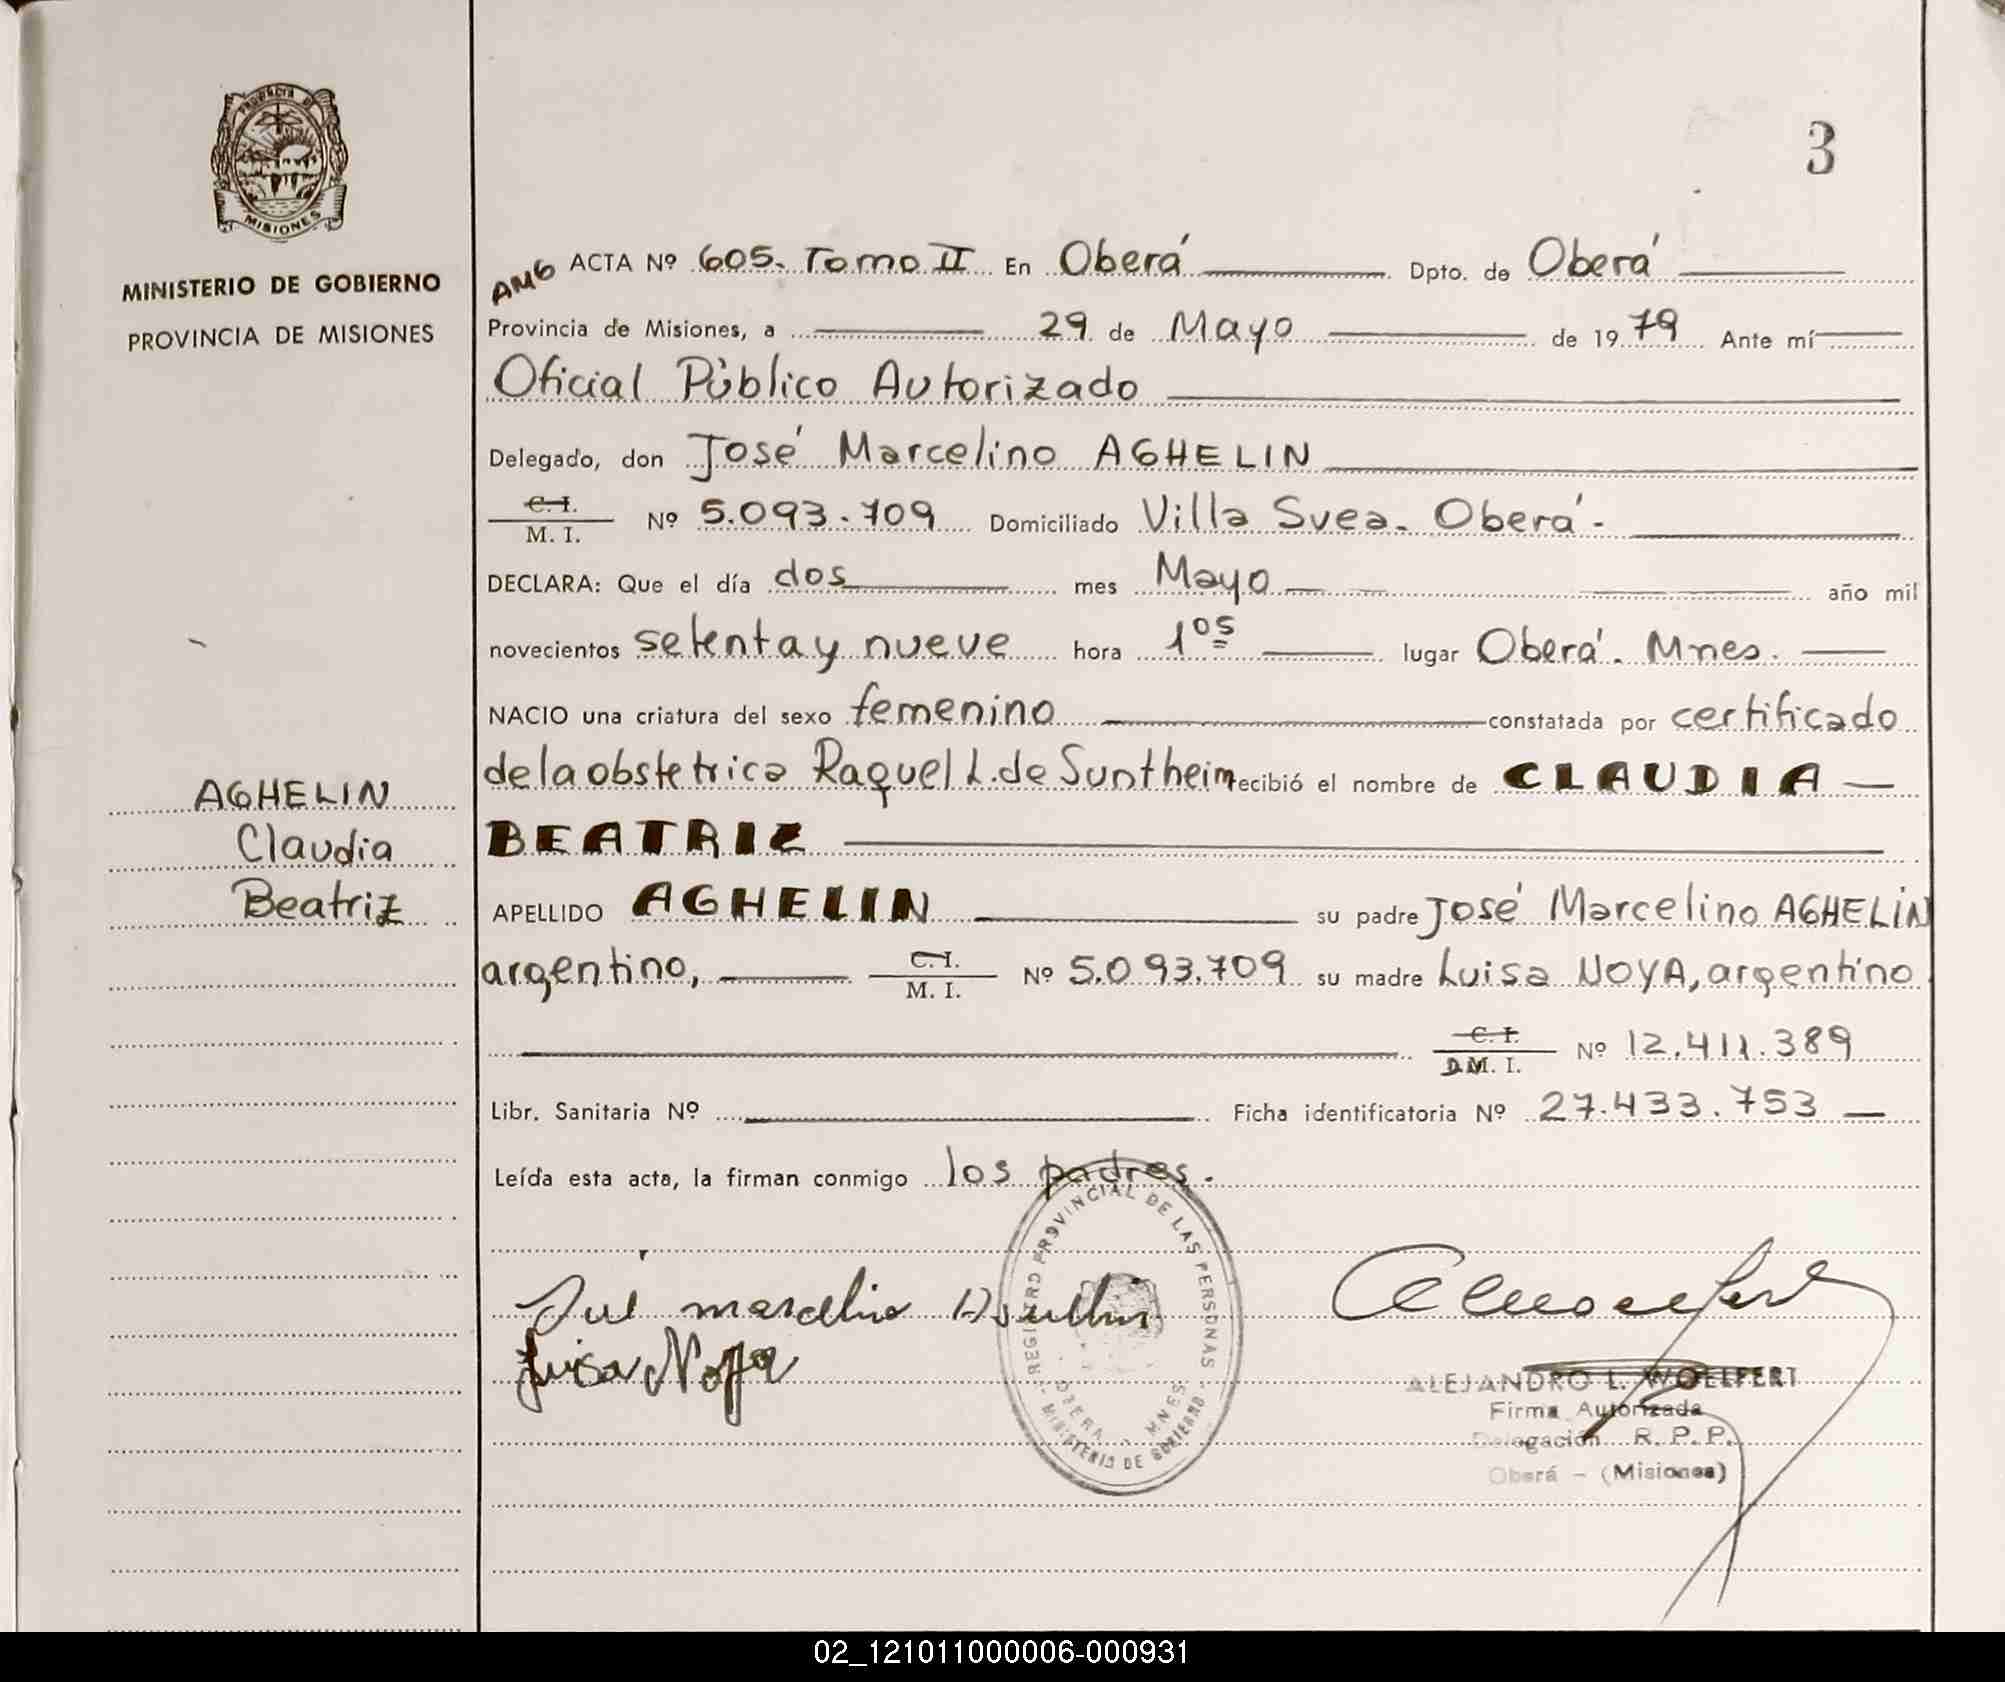 3
PROVINCIA DE
MISIONES
MINISTERIO DE GOBIERNO
PROVINCIA DE MISIONES
AMG ACTA Nº 605. Tomo II En Oberá Dpto. de Oberá
Provincia de Misiones, a 29 de Mayo de 1979 Ante mí
Oficial Público Autorizado
Delegado, don José Marcelino AGHELIN
C. I.
M. I. Nº 5.093.709 Domiciliado Villa Svea. Oberá.-
DECLARA: Que el día dos mes Mayo año mil
novecientos setenta y nueve hora 1⁰⁵ lugar Oberá. Mnes.
NACIO una criatura del sexo femenino constatada por certificado
de la obstetrica Raquel L. de Suntheim recibió el nombre de CLAUDIA
BEATRIZ
APELLIDO AGHELIN su padre José Marcelino AGHELIN
argentino, C. I.
M. I. Nº 5.093.709 su madre Luisa NOYA, argentino
C. I.
D.M. I. Nº 12.411.389
Libr. Sanitaria Nº Ficha identificatoria Nº 27.433.753
Leída esta acta, la firman conmigo los padres.
AGHELIN
Claudia
Beatriz
Luisa Noya
REGISTRO PROVINCIAL DE LAS PERSONAS
OBERA - MNES
MINISTERIO DE GOBIERNO
ALEJANDRO L. WOELFERT
Firma Autorizada
Delegación R. P. P.
Oberá - (Misiones)
02_121011000006-000931